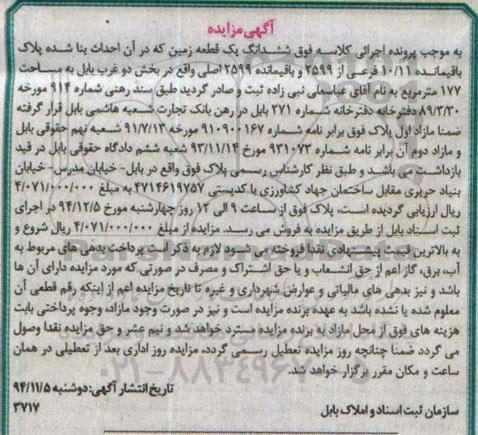 آگهی مزایده
به موجب پرونده اجرائی کلاسه فوق ششدانگ یک قطعه زمین که در آن احداث بنا شده پلاک
باقیمانده ۱۰/۱۱ فرعی از ۲۵۹۹ و باقیمانده ۲۵۹۹ اصلی واقع در بخش دو غرب بابل به مساحت
۱۷۷ مترمربع به نام آقای عباسعلی نبی زاده ثبت و صادر گردید طبق سند رهنی شماره ۹۱۴ مورخه
۸۹/۳/۳۰ دفترخانه دفترخانه شماره ۲۷۱ بابل در رهن بانک تجارت شعبه هاشمی بابل قرار گرفته
ضمنا مازاد اول پلاک فوق برابر نامه شماره ۹۱۰۹۰۰۱۶۷ مورخه ۹۱/۷/۱۳ شعبه نهم حقوقی بابل
و مازاد دوم آن برابر نامه شماره ۹۳۱۰۷۳ مورخ ۹۳/۱۱/۱۴ شعبه ششم دادگاه حقوقی بابل در قید
بازداشت می باشد و طبق نظر کارشناس رسمی پلاک فوق واقع در بابل- خیابان مدرس- خیابان
بنیاد حریری مقابل ساختمان جهاد کشاورزی با کدپستی ۴۷۱۴۶۱۹۷۵۷ به مبلغ ۴/۰۷۱/۰۰۰/۰۰۰
ریال ارزیابی گردیده است، پلاک فوق از ساعت ۹ الی ۱۲ روز چهارشنبه مورخ ۹۴/۱۲/۵ در اجرای
ثبت اسناد بابل از طریق مزایده به فروش می رسد. مزایده از مبلغ ۴/۰۷۱/۰۰۰/۰۰۰ ریال شروع و
به بالاترین قیمت پیشنهادی نقدا فروخته می شود لازم به ذکر است پرداخت بدهی های مربوط به
آب، برق، گاز اعم از حق انشعاب و یا حق اشتراک و مصرف در صورتی که مورد مزایده دارای آن ها
باشد و نیز بدهی های مالیاتی و عوارض شهرداری و غیره تا تاریخ مزایده اعم از اینکه رقم قطعی آن
معلوم شده یا نشده باشد به عهده برنده مزایده است و نیز در صورت وجود مازاد، وجوه پرداختی بابت
هزینه های فوق از محل مازاد به برنده مزایده مسترد خواهد شد و نیم عشر و حق مزایده نقدا وصول
می گردد ضمنا چنانچه روز مزایده تعطیل رسمی گردد، مزایده روز اداری بعد از تعطیلی در همان
ساعت و مکان مقرر برگزار خواهد شد.
تاریخ انتشار آگهی: دوشنبه ۹۴/۱۱/۵
سازمان ثبت اسناد و املاک بابل ۳۷۱۷
۰۲۱-۸۸۳۴۹۶۷۰